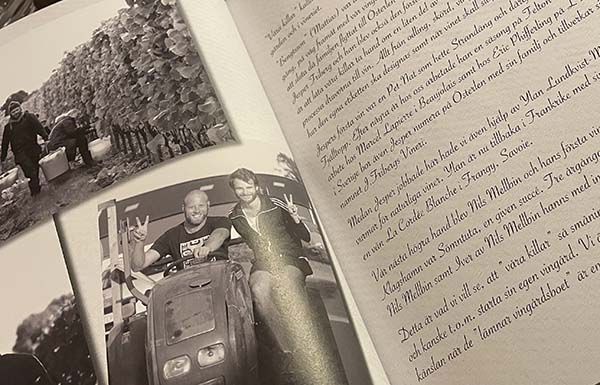 "Våra killar"
gården och i vineriet.
"Bengtsson" (Mattias) var
gång, på väg hemåt med sin
att dela familjens flyttat till Österlen
Jesper Friberg och han blev också en
att låta våra killar ta hand om en liten del av
processa druvorna till vin. Allt från odling, skörd, vin
hur den egna etiketten ska designas samt när vinet skall sl
Jespers första vin var en Pet-Nat som hette Strandäng och
Fulltopp. Efter några år hos oss arbetade han en säsong på Felton
arbete hos Marcel Lapierre i Beaujolais samt hos Eric Pfifferling på L'
i Sverige bor även Jesper numera på Österlen med sin familj och tillverkar si
namnet J Fribergs Vineri.
Medan Jesper jobbade här hade vi även hjälp av Ylan Lundkvist
värmar för naturliga viner. Ylan är nu tillbaka i Frankrike med si
en vän, La Cordée Blanche i Frangy, Savoie.
Vår nästa högra hand blev Nils Mellbin och hans första vin
Klagshamn var Sömntuta, en given succé. Tre årgångar
Nils Mellbin samt Iver av Nils Mellbin hanns med in
Detta är vad vi vill se, att "våra killar" så småning
och kanske t.o.m. starta sin egen vingård. Vi
känslan när de "lämnar vingårdsboet" är en